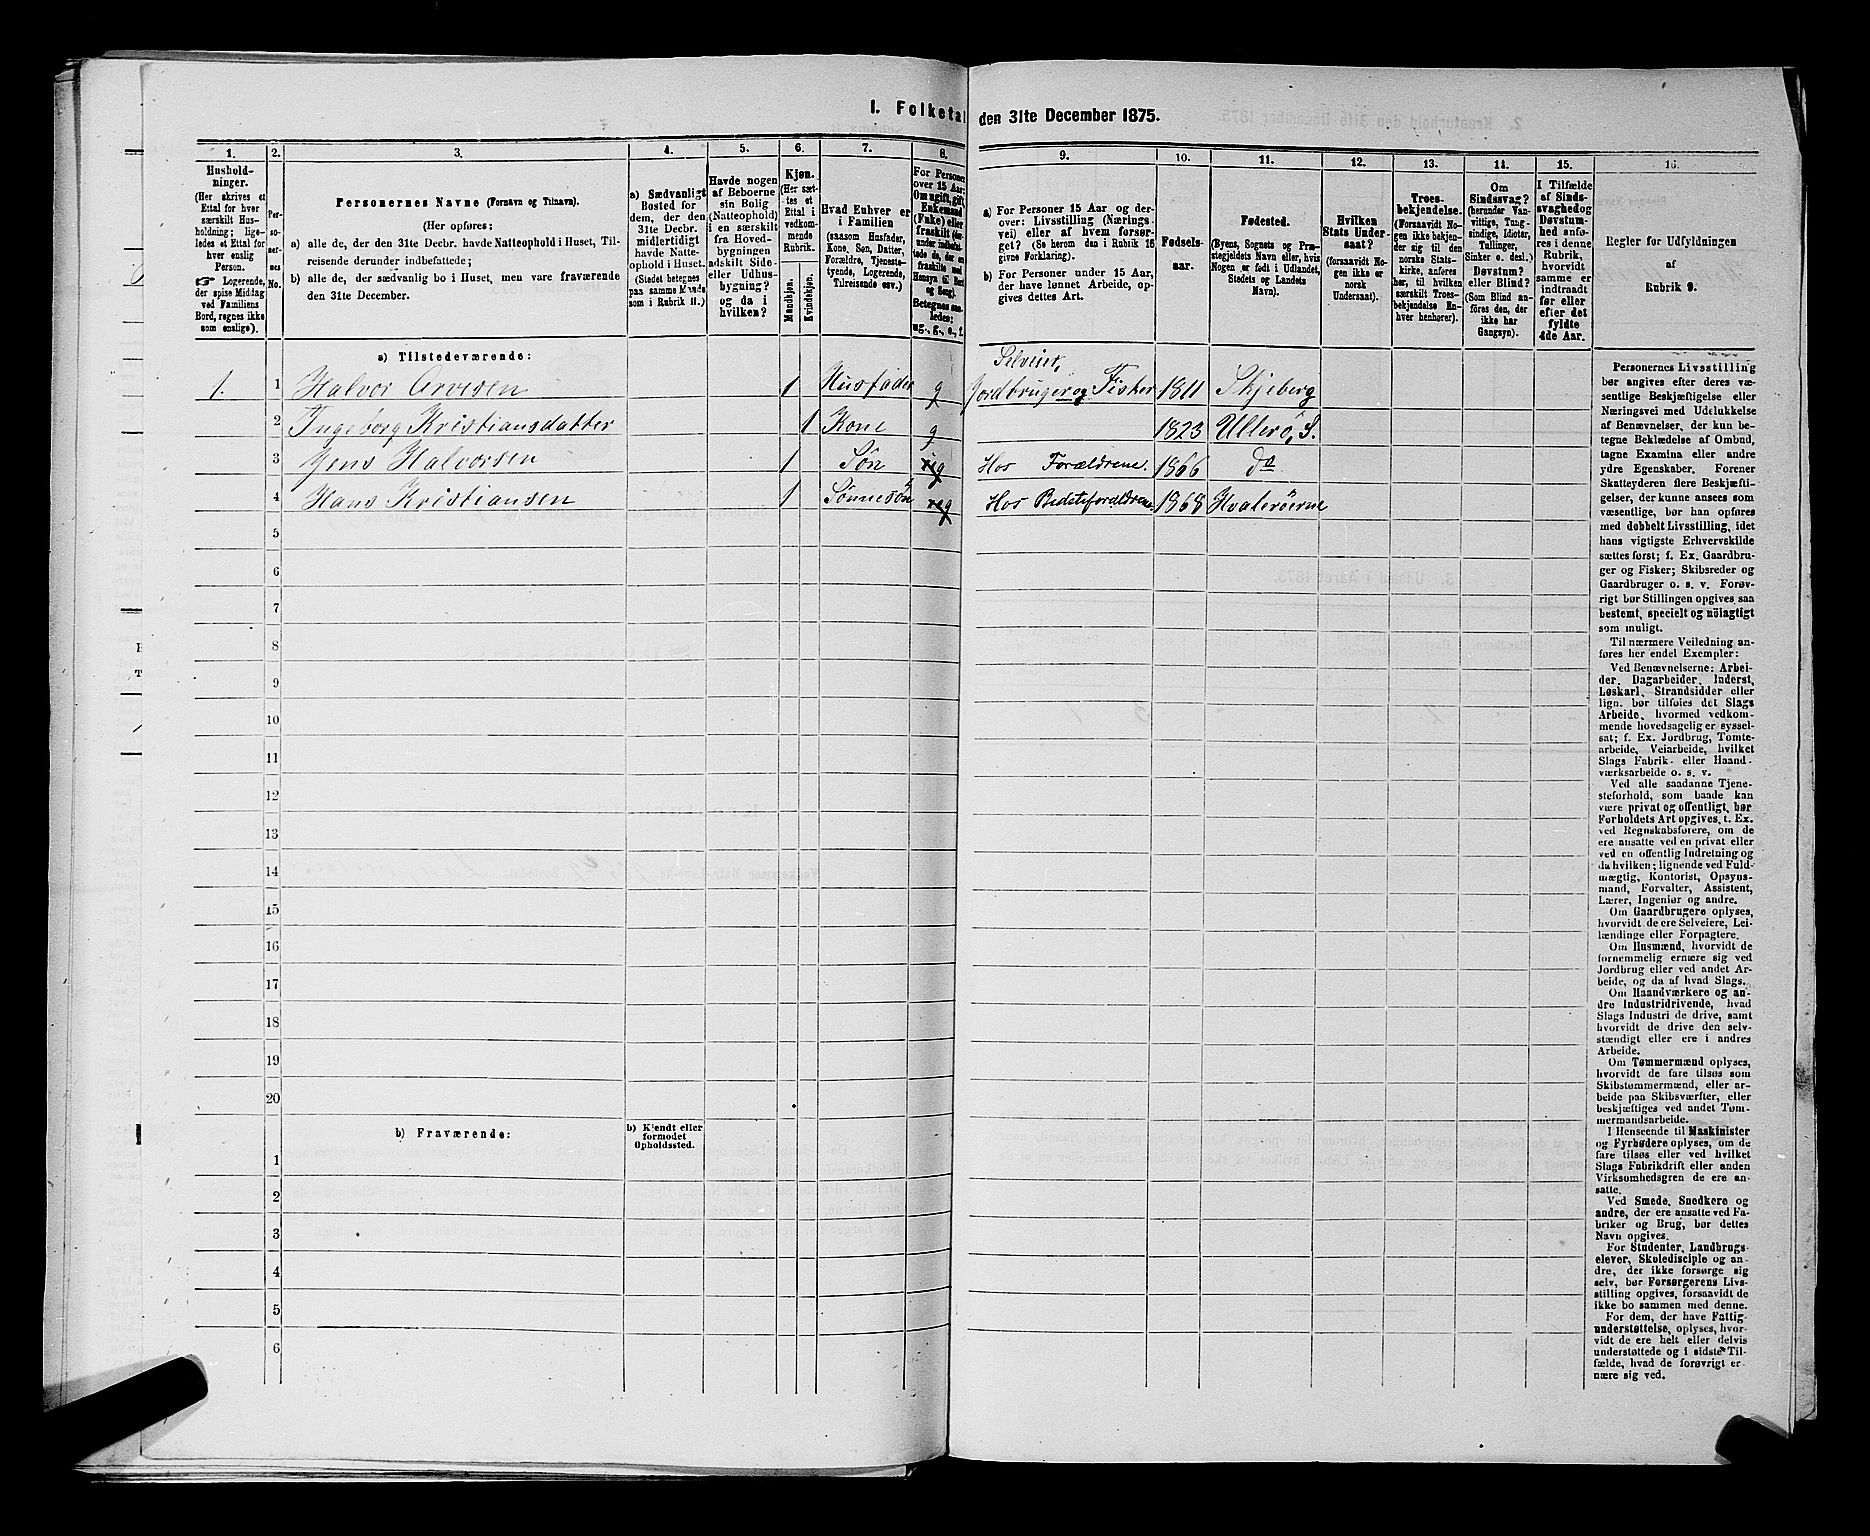 1. Folketal den 31te December 1875.
1. 2. 3. 4. 5. 6. 7. 8. 9. 10. 11. 12. 13. 14. 15. 16.
Hushold-
ninger.
(Her skrives et
Ettal for hver
særskilt Hus-
holdning; lige-
ledes et Ettal for
hver enslig
Person.
☞ Logerende,
der spise Middag
ved Familiens
Bord, regnes ikke
som enslige).
Per-
so-
ner-
nes
No.
Personernes Navne (Fornavn og Tilnavn).
(Her opføres:
a) alle de, der den 31te Decbr. havde Natteophold i Huset, Til-
reisende derunder indbefattede;
b) alle de, der sædvanlig bo i Huset, men vare fraværende
den 31te December.
a) Sædvanligt
Bosted for
dem, der den
31te Decbr.
midlertidigt
havde Natte-
ophold i Huset.
(Stedet betegnes
paa samme Maade
som i Rubrik 11.)
Havde nogen
af Beboerne
sin Bolig
(Natteophold)
i en særskilt
fra Hoved-
bygningen
adskilt Side-
eller Udhus-
bygning?
og da i
hvilken?
Kjøn.
(Her sæt-
tes et
Ettal i
vedkom-
mende
Rubrik.
Mandkjøn.
Kvindekjøn.
Hvad Enhver er
i Familien
(saasom Husfader,
Kone, Søn, Datter,
Forældre, Tjeneste-
tyende, Logerende,
Tilreisende osv.)
For Personer
over 15 Aar:
Om ugift, gift,
Enkemand
(Enke) eller
fraskilt
Betegnes saa-
ledes:
ug., g., e., f.
a) For Personer 15 Aar og der-
over: Livsstilling (Nærings-
vei) eller af hvem forsør-
get? (Se herom den i Rubrik 16
givne Forklaring).
b) For Personer under 15 Aar,
der have lønnet Arbeide, op-
gives dettes Art.
Fødsels-
aar.
Fødested.
(Byens, Sognets og Præ-
stegjeldets Navn eller, hvis
Nogen er født i Udlandet,
Stedets og Landets
Navn).
Hvilken
Stats Under-
saat?
(forsaavidt No-
gen ikke er
norsk
Undersaat).
Troes-
bekjendelse.
(Forsaavidt No-
gen ikke bekjen-
der sig til den
norske Stats-
kirke, anføres
her, til hvilken
særskilt Troes-
bekjendelse En-
hver henhører).
Om
Sindssvag?
(herunder Van-
vittige, Tung-
sindige, Idioter,
Tullinger,
Sinker o. desl.)
Døvstum?
eller Blind?
(Som Blind an-
føres den, der
ikke har
Gangsyn).
I Tilfælde
af Sinds-
svaghed og
Døvstum-
hed anfø-
res i denne
Rubrik,
hvorvidt
samme er
indtraadt
før eller
efter det
fyldte
4de Aar.
Regler for Udfyldningen
af
Rubrik 9.
a) Tilstedeværende:
Selveier,
1. 1 Halvor Arvesen 1 Husfader g Jordbruger og Fisker 1811 Skjeberg
2 Ingeborg Kristiansdatter 1 Kone g 1823 Ullerö, S.
3 Jens Halvorsen 1 Sön ug Hos Forældrene. 1866 do
4 Hans Kristiansen 1 Sönnesön ug Hos Bedsteforældrene. 1868 Hvaleröerne
5
6
7
8
9
10
11
12
13
14
15
16
17
18
19
20
b) Fraværende:
b) Kjendt eller
formodet
Opholdssted.
1
2
3
4
5
6
Personernes Livsstilling
bør angives efter deres væ-
sentlige Beskjæftigelse eller
Næringsvei med Udelukkelse
af Benævnelser, der kun be-
tegne Beklædelse af Ombud,
tagne Examina eller andre
ydre Egenskaber. Forener
Skatteyderen flere Beskjæfti-
gelser, der kunne ansees som
væsentlige, bør han opføres
med dobbelt Livsstilling, idet
hans vigtigste Erhvervskilde
sættes først; f. Ex. Gaardbru-
ger og Fisker; Skibsreder og
Gaardbruger o. s. v. Forøv-
rigt bør Stillingen opgives saa
bestemt, specielt og nöiagtigt
som muligt.
Til nærmere Veiledning an-
føres her endel Exempler:
Ved Benævnelserne: Arbei-
der, Dagarbeider, Inderst,
Løskarl, Strandsidder eller
lign. bør tilføies det Slags
Arbeide, hvormed vedkom-
mende hovedsagelig er syssel-
sat; f. Ex. Jordbrug, Tomte-
arbeide, Veiarbeide, hvilket
Slags Fabrik- eller Haand-
værksarbeide o. s. v.
Ved alle saadanne Tjene-
steforhold, som baade kan
være privat og offentligt, bør
Forholdets Art opgives, t. Ex.
ved Regnskabsførere, om de
ere ansatte ved en privat eller
ved en offentlig Indretning og
da hvilken; lignende ved Fuld-
mægtig, Kontorist, Opsyns-
mand, Forvalter, Assistent,
Lærer, Ingeniør og andre.
Om Gaardbrugere oplyses,
hvorvidt de ere Selveiere, Lei-
lændinge eller Forpagtere.
Om Husmænd, hvorvidt de
fornemmelig ernære sig ved
Jordbrug eller ved andet Ar-
beide, og da af hvad Slags.
Om Haandværkere og an-
dre Industridrivende, hvad
Slags Industri de drive, samt
hvorvidt de drive den selv-
stændigt eller ere i andres
Arbeide.
Om Tømmermænd oplyses,
hvorvidt de fare tilsøs som
Skibstømmermænd, eller ar-
beide paa Skibsværfter, eller
beskjæftiges ved andet Tøm-
mermandsarbeide.
I Henseende til Maskinister
og Fyrbødere oplyses, om de
fare tilsøs eller ved hvilket
Slags Fabrikdrift eller anden
Virksomhedsgren de ere an-
satte.
Ved Smede, Snedkere og
andre, der ere ansatte ved Fa-
briker og Brug, bør dettes
Navn opgives.
For Studenter, Landbrugs-
elever, Skoledisciple og an-
dre, der ikke forsørge sig
selv, bør Forsørgerens Livs-
stilling opgives, forsaavidt de
ikke bo sammen med denne.
For dem, der have Fattig-
understøttelse, oplyses, hvor-
vidt de ere helt eller delvis
understøttede og i sidste Til-
fælde, hvad de forøvrigt er-
nære sig ved.